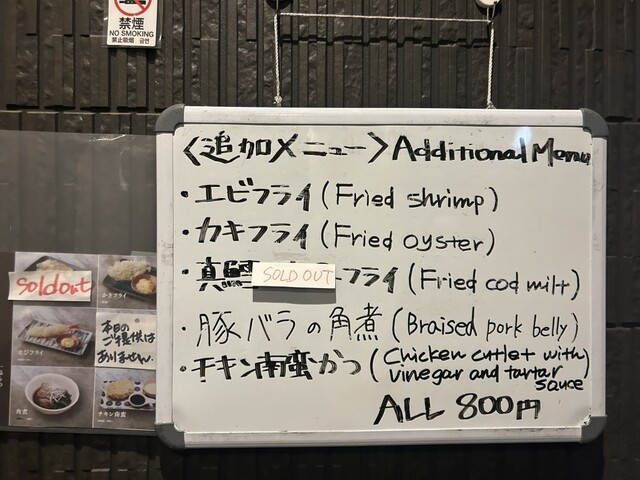 禁煙
NO SMOKING
禁止吸烟 금연
〈追加メニュー〉Additional Menu
・エビフライ(Fried shrimp)
・カキフライ(Fried oyster)
・真 SOLD OUT フライ(Fried cod milt)
・豚バラの角煮(Braised pork belly)
・チキン南蛮かつ(Chicken cutlet with
vinegar and tartar
sauce)
ALL 800円
Sold out
かきフライ
えびフライ
本日の
ご提供は
ありません.
角煮
チキン南蛮